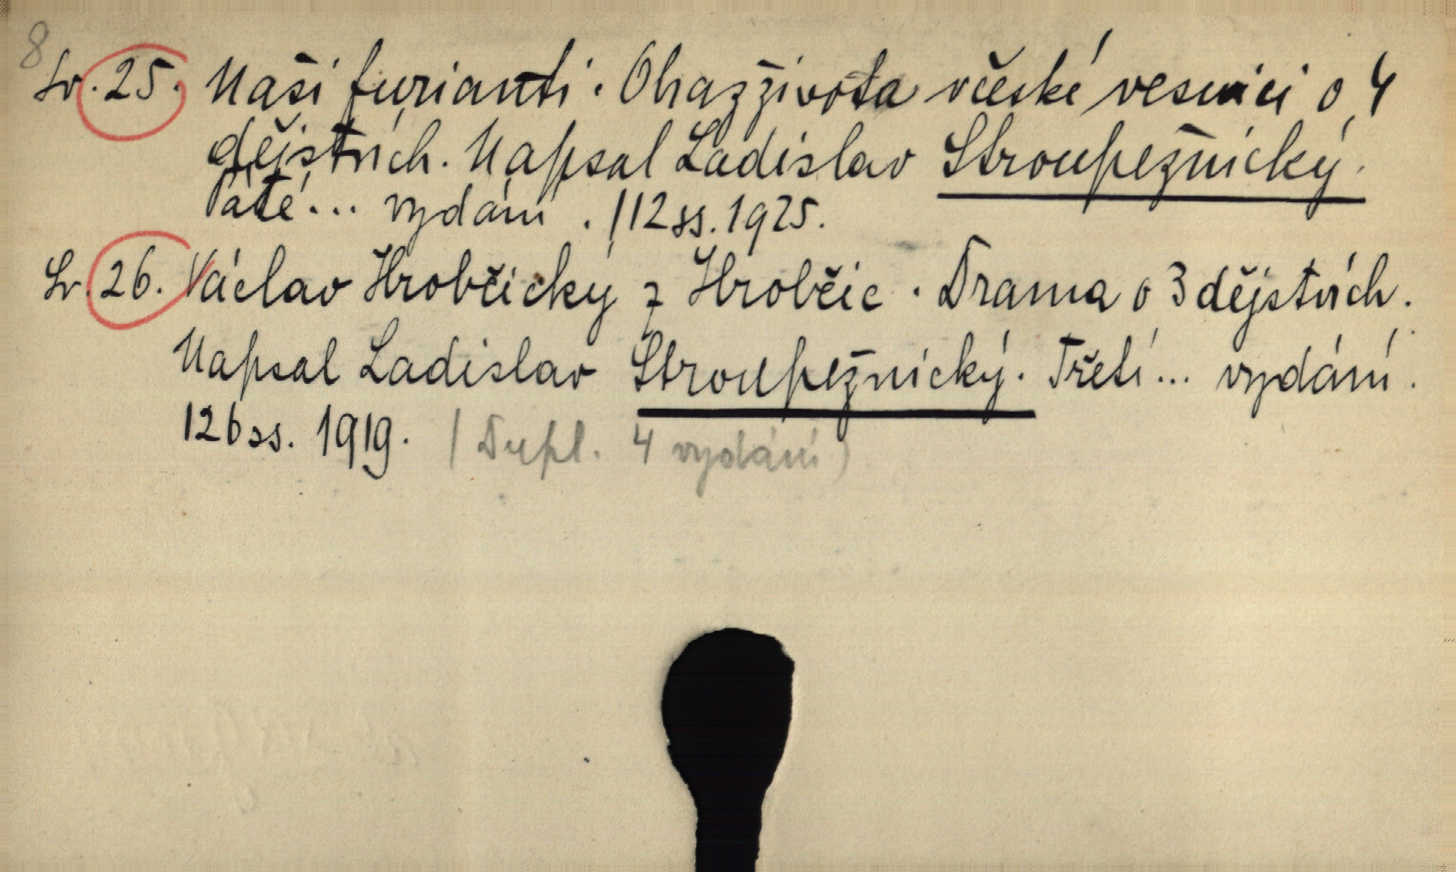 8
Sv. 25. Naši furianti. Obraz života v české vesnici o 4
dějstvích. Napsal Ladislav Stroupežnický.
Páté... vydání. 112 ss. 1925.
Sv. 26. Václav Hrobčický z Hrobčic. Drama o 3 dějstvích.
Napsal Ladislav Stroupežnický. Třetí... vydání.
126 ss. 1919. (Dupl. 4 vydání)